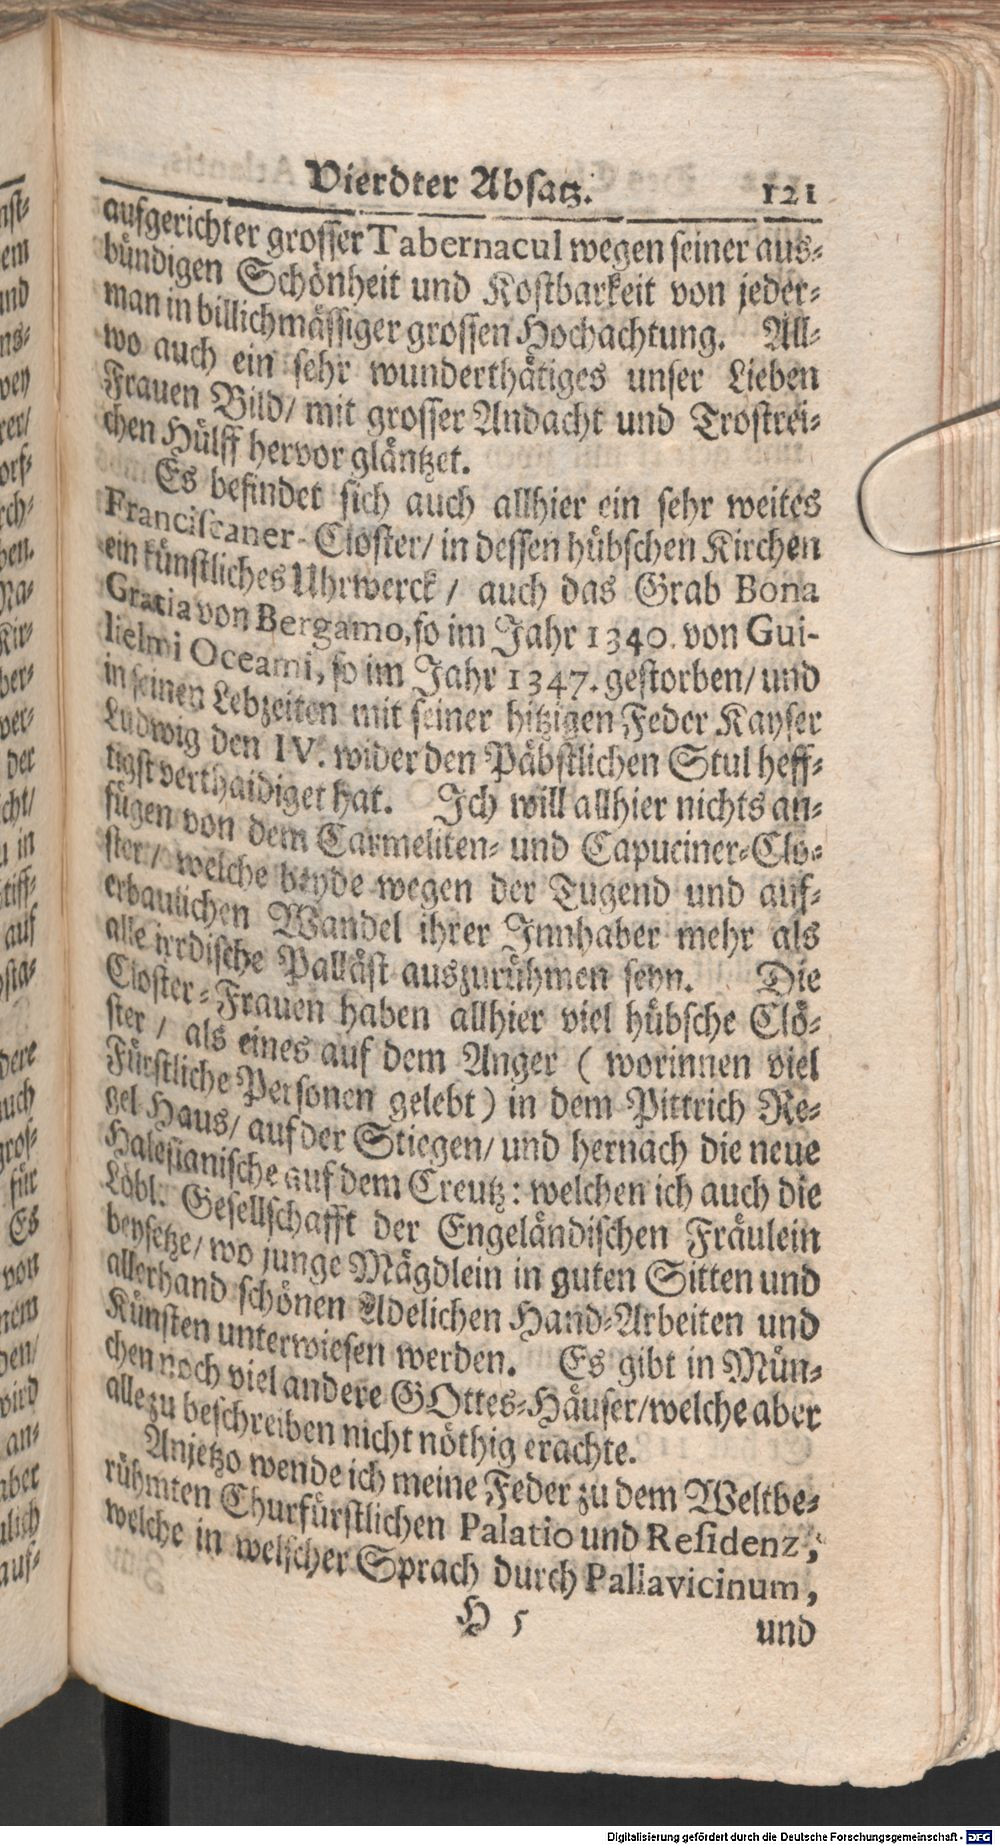 Vierdter Absatz. 121
aufgerichter grosser Tabernacul wegen seiner aus-
bündigen Schönheit und Kostbarkeit von jeder-
man in billichmässiger grossen Hochachtung. All-
wo auch ein sehr wunderthätiges unser Lieben
Frauen Bild/ mit grosser Andacht und Trostrei-
chen Hülff hervor gläntzet.
Es befindet sich auch allhier ein sehr weites
Franciscaner-Closter/ in dessen hübschen Kirchen
ein künstliches Uhrwerck / auch das Grab Bona
Gratia von Bergamo, so im Jahr 1340. von Gui-
lielmi Oceami, so im Jahr 1347. gestorben/ und
in seinen Lebzeiten mit seiner hitzigen Feder Kayser
Ludwig den IV. wider den Päbstlichen Stul heff-
tigst verthaidiget hat. Ich will allhier nichts an-
fügen von dem Carmeliten- und Capuciner-Clo-
ster/ welche beyde wegen der Tugend und auf-
erbaulichen Wandel ihrer Innhaber mehr als
alle irrdische Palläst auszurühmen seyn. Die
Closter-Frauen haben allhier viel hübsche Clö-
ster / als eines auf dem Anger ( worinnen viel
Fürstliche Personen gelebt) in dem Pittrich Re-
gel Haus/ auf der Stiegen/ und hernach die neue
Halesianische auf dem Creutz: welchen ich auch die
Löbl. Gesellschafft der Engeländischen Fräulein
beysetze/ wo junge Mägdlein in guten Sitten und
allerhand schönen Adelichen Hand-Arbeiten und
Künsten unterwiesen werden. Es gibt in Mün-
chen noch viel andere GOttes-Häuser/welche aber
alle zu beschreiben nicht nöthig erachte.
Anjetzo wende ich meine Feder zu dem Weltbe-
rühmten Churfürstlichen Palatio und Residenz,
welche in welscher Sprach durch Pallavicinum,
H 5 und
Digitalisierung gefördert durch die Deutsche Forschungsgemeinschaft - DFG